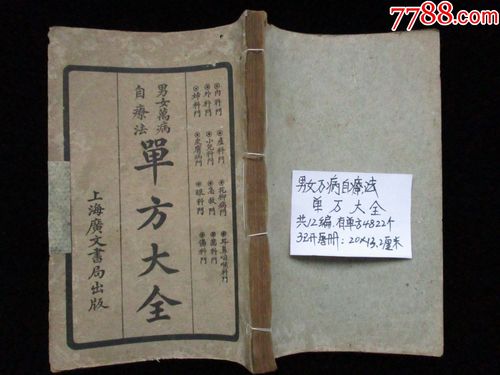 7788.com
中国收藏热线
男女萬病
自療法
單方大全
上海廣文書局出版
內科門
外科門
婦科門
產科門
小兒科門
皮膚病門
花柳病門
急救門
眼科門
耳鼻咽喉科門
齒科門
傷科門
男女万病自療法
單方大全
共12編.有單方4822个
32开厚册：20×13.2厘米